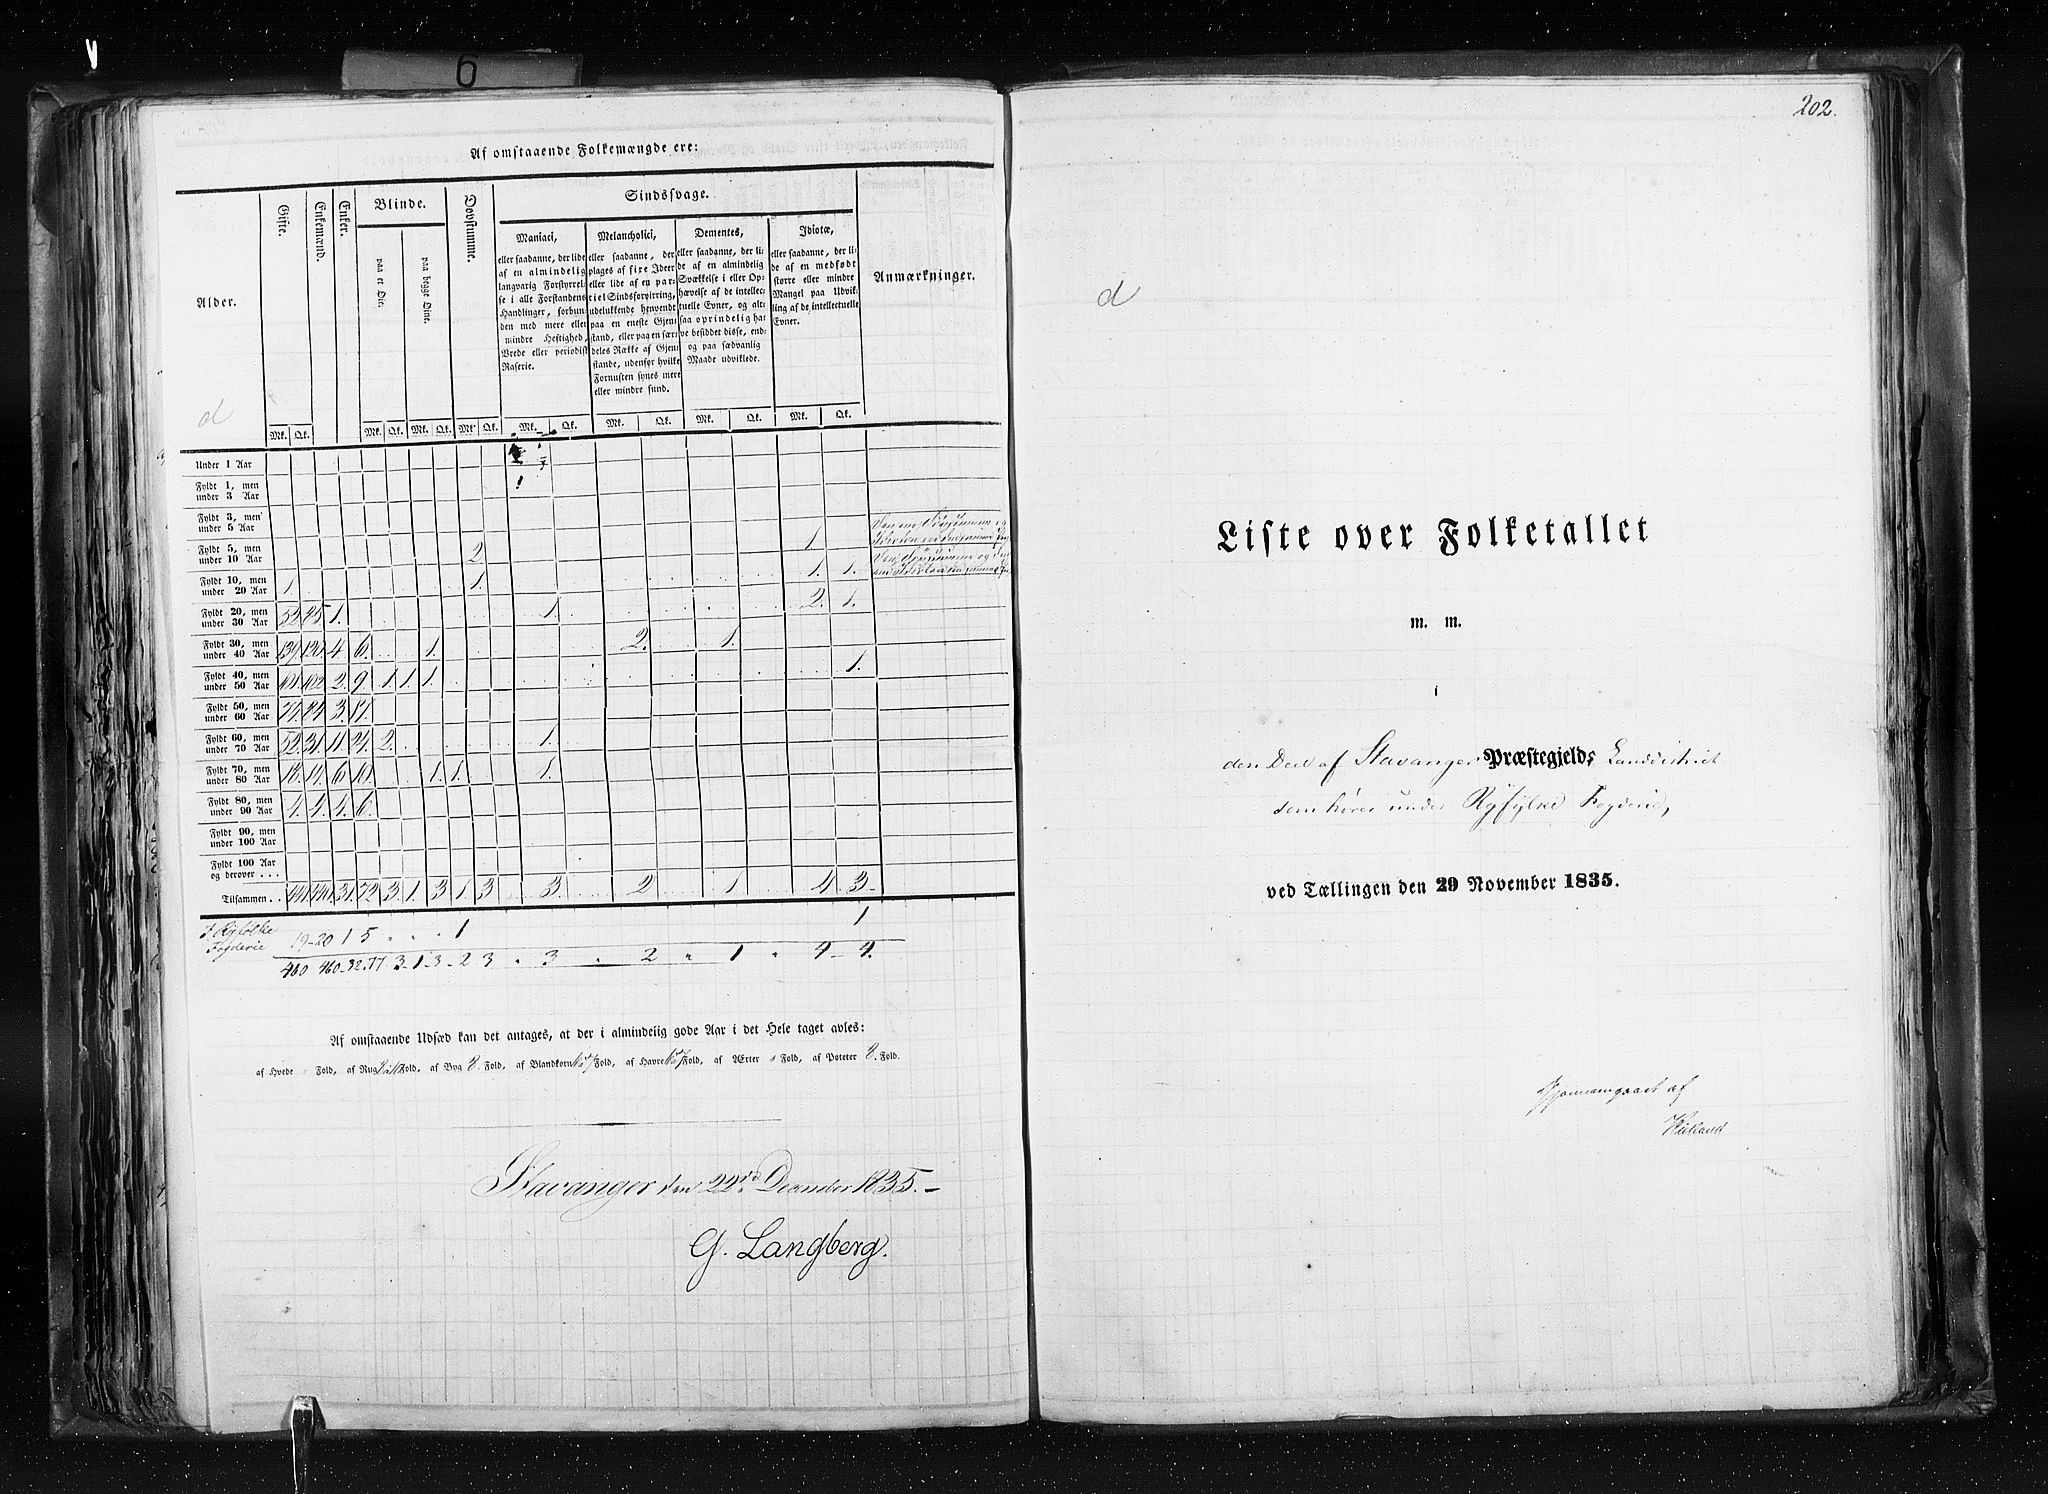 6
Af omstaaende Folkemængde ere:
Alder.
Gifte.
Enkemænd.
Enker.
Blinde.
paa et Øie.
paa begge Øine.
Døvstumme.
Sindssvage.
Maniaci,
eller saadanne, der lide
af en almindelig
langvarig Forstyrrelse
i alle Forstandens
Handlinger, forbunden
med mere eller
mindre Heftighed,
Vrede eller periodisk
Raserie.
Melancholici,
eller saadanne, der
plages af fixe Ideer
eller lide af en partiel
Sindsforvirring,
udelukkende henvendt
paa en eneste Gjenstand,
eller paa en særdeles
Række af Gjenstande,
udenfor hvilke
Fornuften synes mere
eller mindre sund.
Dementes,
eller saadanne, der lide
af en almindelig
Svækkelse i eller Ophævelse
af de intellectuelle
Evner, og altsaa
oprindelig have
besiddet disse, endog
paa sædvanlig
Maade udviklede.
Idiotæ,
eller saadanne, der lide
af en medfødt
større eller mindre
Mangel paa Udvikling
af de intellectuelle
Evner.
Anmærkninger.
d
Mk. Qk. Mk. Qk. Mk. Qk. Mk. Qk. Mk. Qk. Mk. Qk. Mk. Qk. Mk. Qk.
Under 1 Aar
Fyldt 1, men under 3 Aar
Fyldt 3, men under 5 Aar
Fyldt 5, men under 10 Aar 2 1
Fyldt 10, men under 20 Aar 1. 1. 1. 1.
Fyldt 20, men under 30 Aar 1. 1. 2. 1.
Fyldt 30, men under 40 Aar 139 120 4 6. 1. 2. 1.
Fyldt 40, men under 50 Aar 102 2 9 1 1 1 1.
Fyldt 50, men under 60 Aar 3 17.
Fyldt 60, men under 70 Aar 52. 31. 11. 24. 2. 1.
Fyldt 70, men under 80 Aar 6 10 1. 1. 1.
Fyldt 80, men under 90 Aar 4. 4. 4. 6.
Fyldt 90, men under 100 Aar
Fyldt 100 Aar og derover . . .
Tilsammen . . 441 440 31 72 3 1 3 1 3 3 2 1 4 3
I Ryfølke Fogderie 19-20 1 5 1 1
460 460-32-77 3-1-3-2 3 3 2 1 4-4.
Af omstaaende Udsæd kan det antages, at der i almindelig gode Aar i det Hele taget avles:
af Hvede Fold, af Rug Fold, af Byg 8 Fold, af Blandkorn Fold, af Havre Fold, af Ærter Fold, af Poteter 8. Fold.
Stavanger den 22de December 1835.
G. Langberg.
202.
d
Liste over Folketallet
m. m.
i
den Deel af Stavanger Præstegjelds Landdistrict
som hører under Ryfylke Fogderie,
ved Tællingen den 29 November 1835.
Gjennemgaaet af